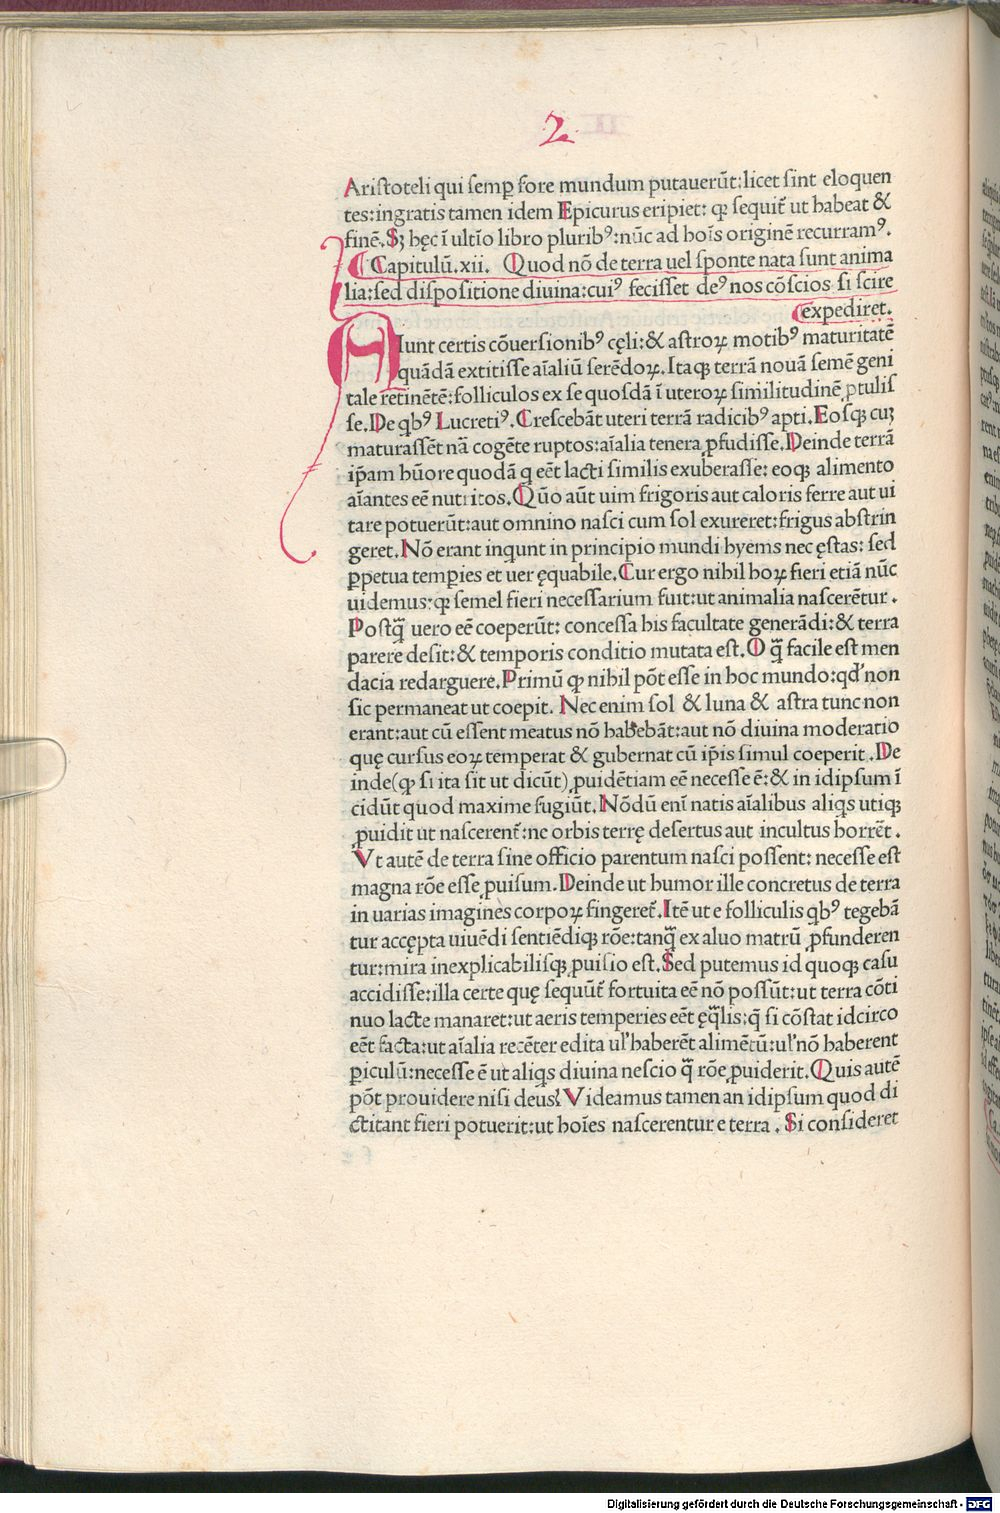 2
Aristoteli qui semp̲ fore mundum putauerūt:licet sint eloquen
tes:ingratis tamen idem Epicurus eripiet: qꝫ sequit̃ ut habeat &
finē.Sꝫ hęc ī ultīo libro pluribꝰ:nūc ad hoīs originē recurramꝰ.
Capitulū.xii. Quod nō de terra uel sponte nata sunt anima
lia:sed dispositione diuina:cuiꝰ fecisset deꝰ nos cōscios si scire
expediret.
AIunt certis cōuersionibꝰ cęli:& astroꝝ motibꝰ maturitatē
quādā extitisse aīaliū serēdoꝝ.Itaqꝫ terrā nouā semē geni
tale retinētē:folliculos ex se quosdā ī uteroꝝ similitudinē ꝓtulis
se.De qbꝰ Lucretiꝰ.Crescebāt uteri terrā radicibꝰ apti.Eosqꝫ cuꝫ
maturassēt nā cogēte ruptos:aīalia tenera ꝓfudisse.Deinde terrā
ip̄am hūore quodā q eēt lacti similis exuberasse: eoqꝫ alimento
aīantes eē nutritos.Qūo aūt uim frigoris aut caloris ferre aut ui
tare potuerūt:aut omnino nasci cum sol exureret:frigus abstrin
geret.Nō erant inqunt in principio mundi hyems nec ęstas: sed
ꝑpetua temꝑies et uer ęquabile.Cur ergo nihil hoꝝ fieri etiā nūc
uidemus:qꝫ semel fieri necessarium fuit:ut animalia nascerētur.
Postq̄ uero eē coeperūt: concessa his facultate generādi:& terra
parere desit:& temporis conditio mutata est.O q̄ facile est men
dacia redarguere.Primū qꝫ nihil pōt esse in hoc mundo:qd' non
sic permaneat ut coepit. Nec enim sol & luna & astra tunc non
erant:aut cū essent meatus nō habebāt:aut nō diuina moderatio
quę cursus eoꝝ temperat & gubernat cū ip̄is simul coeperit.De
inde(qꝫ si ita sit ut dicūt)ꝓuidētiam eē necesse ē:& in idipsum ī
cidūt quod maxime fugiūt.Nōdū enī natis aīalibus aliqs utiqꝫ
ꝓuidit ut nascerent̃:ne orbis terrę desertus aut incultus horrēt.
Vt autē de terra sine officio parentum nasci possent: necesse est
magna rōe esse ꝓuisum.Deinde ut humor ille concretus de terra
in uarias imagines corpoꝝ fingeret̃.Itē ut e folliculis qbꝰ tegebā
tur accępta uiuēdi sentiēdiqꝫ rōe:tanq̄ ex aluo matrū ꝓfunderen
tur:mira inexplicabilisqꝫ ꝓuisio est.Sed putemus id quoqꝫ casu
accidisse:illa certe quę sequūt̃ fortuita eē nō possūt:ut terra cōti
nuo lacte manaret:ut aeris temperies eēt ęq̄lis:q̄ si cōstat idcirco
eēt facta:ut aīalia recēter edita ul' haberēt alimētū:ul' nō haberent
ꝑiculū:necesse ē ut aliqs diuina nescio q̄ rōe ꝓuiderit.Quis autē
pōt prouidere nisi deus?Videamus tamen an idipsum quod di
ctitant fieri potuerit:ut hoīes nascerentur e terra. Si consideret
Digitalisierung gefördert durch die Deutsche Forschungsgemeinschaft - DFG